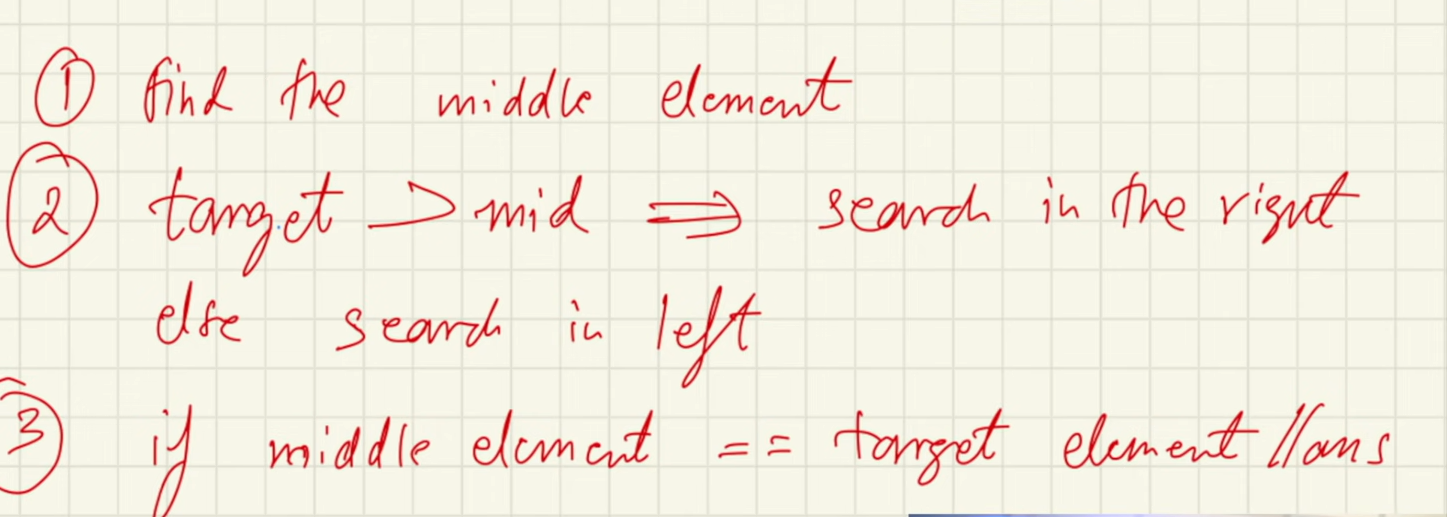 ① find the middle element
② target > mid ⇒ search in the right
else search in left
③ if middle element == target element //ans